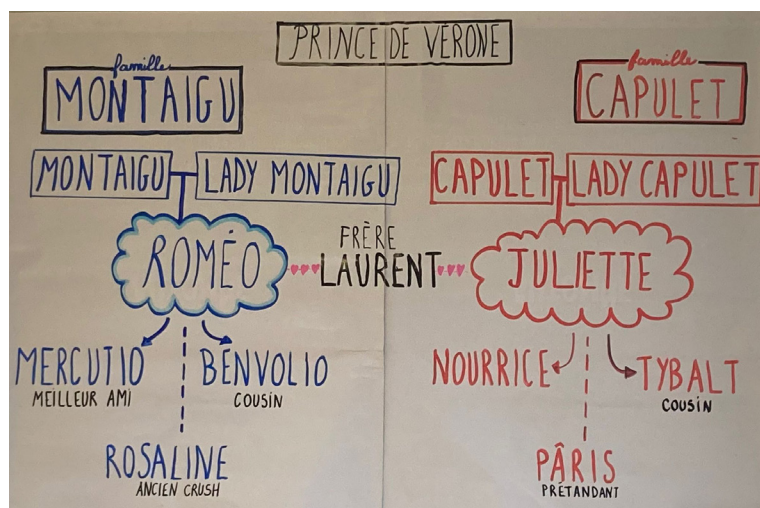 PRINCE DE VÉRONE
famille
MONTAIGU
famille
CAPULET
MONTAIGU LADY MONTAIGU
CAPULET LADY CAPULET
ROMÉO
FRÈRE
LAURENT
JULIETTE
MERCUTIO
MEILLEUR AMI
BENVOLIO
COUSIN
NOURRICE
TYBALT
COUSIN
ROSALINE
ANCIEN CRUSH
PÂRIS
PRÉTANDANT